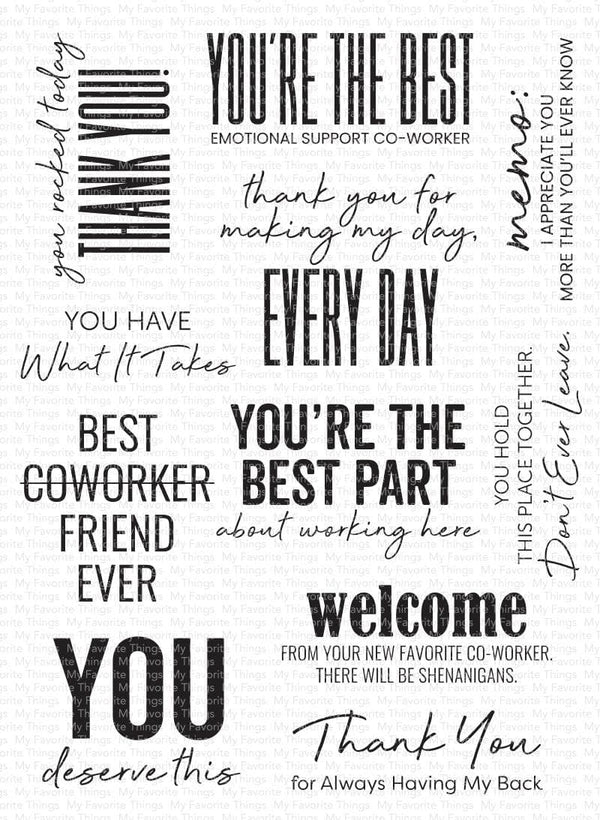 you rocked today
THANK YOU!
YOU'RE THE BEST
EMOTIONAL SUPPORT CO-WORKER
thank you for
making my day,
EVERY DAY
memo:
I APPRECIATE YOU
MORE THAN YOU'LL EVER KNOW
YOU HAVE
What It Takes
BEST
COWORKER
FRIEND
EVER
YOU'RE THE
BEST PART
about working here
YOU HOLD
THIS PLACE TOGETHER.
Don't Ever Leave.
welcome
FROM YOUR NEW FAVORITE CO-WORKER.
THERE WILL BE SHENANIGANS.
YOU
deserve this
Thank You
for Always Having My Back
My Favorite Things